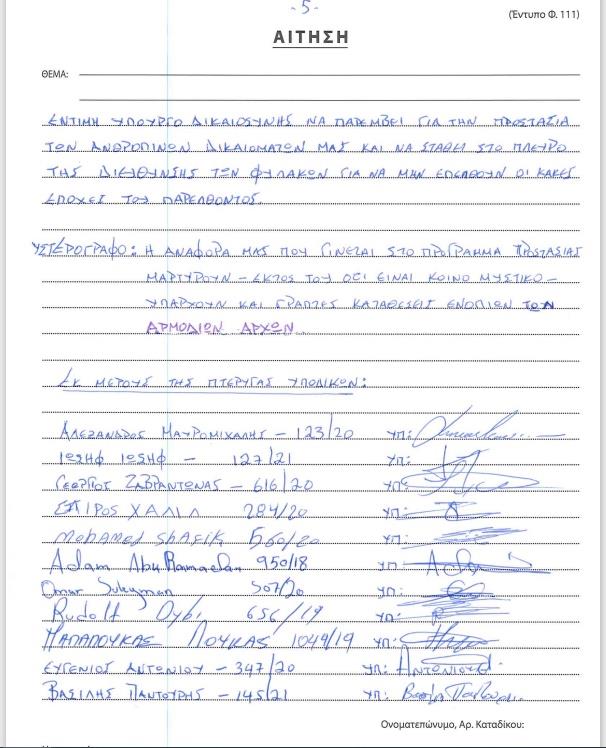 - 5 -
(Έντυπο Φ. 111)
ΑΙΤΗΣΗ
ΘΕΜΑ:
ΕΝΤΙΜΗ ΥΠΟΥΡΓΟ ΔΙΚΑΙΟΣΥΝΗΣ ΝΑ ΠΑΡΕΜΒΕΙ ΓΙΑ ΤΗΝ ΠΡΟΣΤΑΣΙΑ
ΤΩΝ ΑΝΘΡΟΠΙΝΩΝ ΔΙΚΑΙΟΜΑΤΩΝ ΜΑΣ ΚΑΙ ΝΑ ΣΤΑΘΕΙ ΣΤΟ ΠΛΕΥΡΟ
ΤΗΣ ΔΙΕΥΘΥΝΣΗΣ ΤΩΝ ΦΥΛΑΚΩΝ ΓΙΑ ΝΑ ΜΗΝ ΕΠΕΛΘΟΥΝ ΟΙ ΚΑΚΕΣ
ΕΠΟΧΕΣ ΤΟΥ ΠΑΡΕΛΘΟΝΤΟΣ.
ΥΣΤΕΡΟΓΡΑΦΟ: Η ΑΝΑΦΟΡΑ ΜΑΣ ΠΟΥ ΓΙΝΕΤΑΙ ΣΤΟ ΠΡΟΓΡΑΜΜΑ ΠΡΟΣΤΑΣΙΑΣ
ΜΑΡΤΥΡΟΥΝ - ΕΚΤΟΣ ΤΟΥ ΟΤΙ ΕΙΝΑΙ ΚΟΙΝΟ ΜΥΣΤΙΚΟ -
ΥΠΑΡΧΟΥΝ ΚΑΙ ΓΡΑΠΤΕΣ ΚΑΤΑΘΕΣΕΙΣ ΕΝΟΠΙΕΝ ΤΩΝ
ΑΡΜΟΔΙΩΝ ΑΡΧΩΝ
ΕΚ ΜΕΡΟΥΣ ΤΗΣ ΠΤΕΡΥΓΑΣ ΥΠΟΔΙΚΩΝ:
ΑΛΕΞΑΝΔΡΟΣ ΜΑΥΡΟΜΙΧΑΛΗΣ - 123/20 ΥΠ:
ΙΩΣΗΦ ΙΩΣΗΦ - 127/21 ΥΠ:
ΓΕΩΡΓΙΟΣ ΖΑΒΡΑΝΤΩΝΑΣ - 616/20 ΥΠ:
ΣΠΙΡΟΣ ΧΑΛΙΛ 284/20 ΥΠ:
Mohamed Shafik 560/20 ΥΠ:
Adam Abu Ramadan 950/18 ΥΠ:
Omar Suleyman 507/20 ΥΠ:
Rudolf 656/19 ΥΠ:
ΠΑΠΑΛΟΥΚΑΣ ΛΟΥΚΑΣ 1049/19 ΥΠ:
ΕΥΓΕΝΙΟΣ ΑΝΤΩΝΙΟΥ - 347/20 ΥΠ: Αντωνιου
ΒΑΣΙΛΗΣ ΠΑΝΤΟΥΡΗΣ - 145/21 ΥΠ:
Ονοματεπώνυμο, Αρ. Καταδίκου: